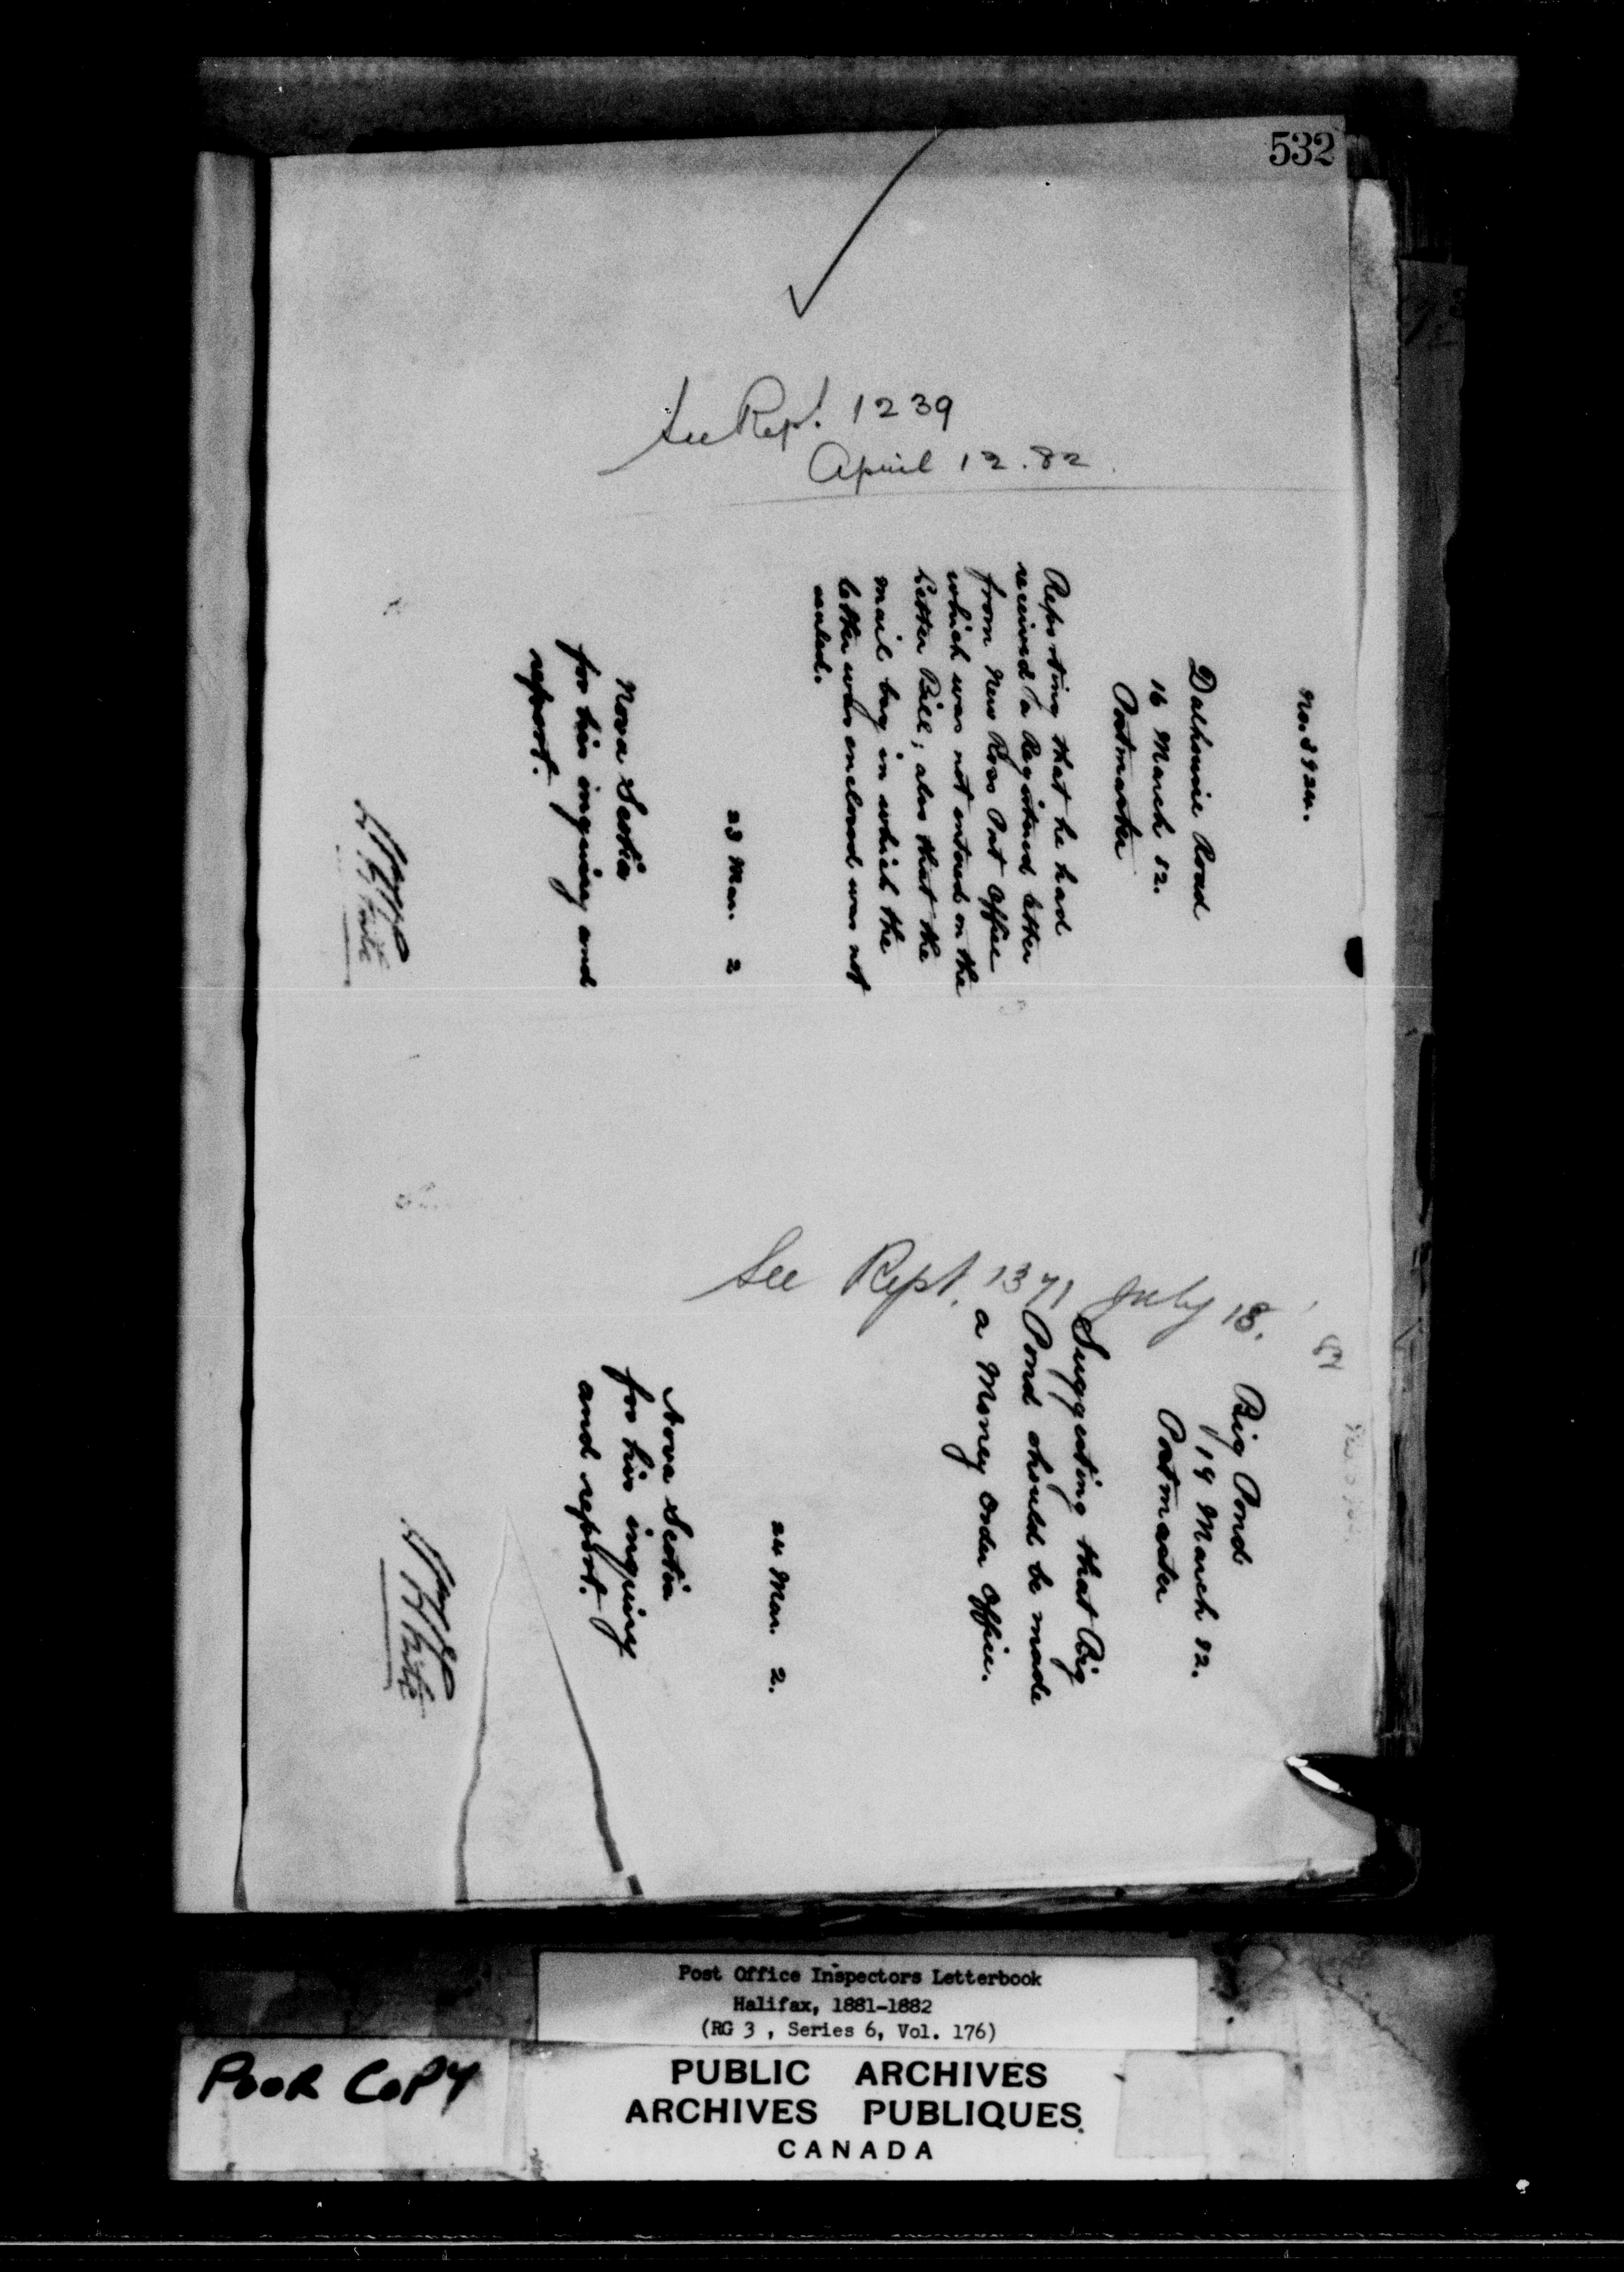 532
See Rept. 1239
April 12. 82.
No. 3924.
Dalhousie Road
16 March 82.
Postmaster
Reporting that he had
received a Registered letter
from New Ross Post Office
which was not entered on the
Letter Bill; also that the
mail bag in which the
letter was enclosed was not
sealed.
23 Mar. 2
Nova Scotia
for his inquiry and
report.
See Rept. 1371 July 18. 82
Big Pond
19 March 82.
Postmaster
Suggesting that Big
Pond should be made
a Money Order Office.
24 Mar. 2.
Nova Scotia
for his inquiry
and report.
Post Office Inspectors Letterbook
Halifax, 1881-1882
(RG 3 , Series 6, Vol. 176)
POOR COPY
PUBLIC ARCHIVES
ARCHIVES PUBLIQUES
CANADA